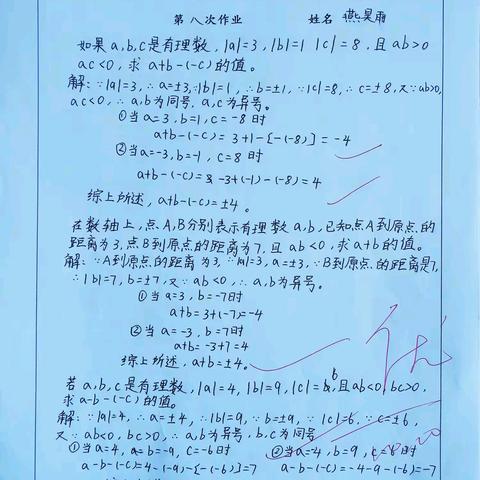 第八次作业 姓名 燕昊雨
如果a,b,c是有理数,|a|=3,|b|=1 |c|=8,且ab>0
ac<0,求a+b-(-c)的值。
解:∵|a|=3,∴a=±3,∵|b|=1,∴b=±1,∵|c|=8,∴c=±8,又∵ab>0,
ac<0,∴a,b为同号,a,c为异号。
①当a=3,b=1,c=-8时
a+b-(-c)=3+1-[-(-8)]=-4
②当a=-3,b=-1,c=8时
a+b-(-c)=-3+(-1)-(-8)=4
综上所述,a+b-(-c)=±4。
在数轴上,点A,B分别表示有理数a,b,已知点A到原点的
距离为3,点B到原点的距离为7,且ab<0,求a+b的值。
解:∵A到原点的距离为3,∵|a|=3,a=±3,∵B到原点的距离是7,
∴|b|=7,b=±7,又∵ab<0,∴a,b为异号。
①当a=3,b=-7时
a+b=3+(-7)=-4
②当a=-3,b=7时
a+b=-3+7=4
综上所述,a+b=±4。
优
若a,b,c是有理数,|a|=4,|b|=9,|c|=6,且ab<0,bc>0,
求a-b-(-c)的值。
解:∵|a|=4,∴a=±4,∵|b|=9,∴b=±9,∵|c|=6,∵c=±6,
又∵ab<0,bc>0,∴a,b为异号,b,c为同号
①当a=4,b=-9,c=-6时 ②当a=-4,b=9,c=6时
a-b-(-c)=4-(-9)-[-(-6)]=7 a-b-(-c)=-4-9-(-6)=-7